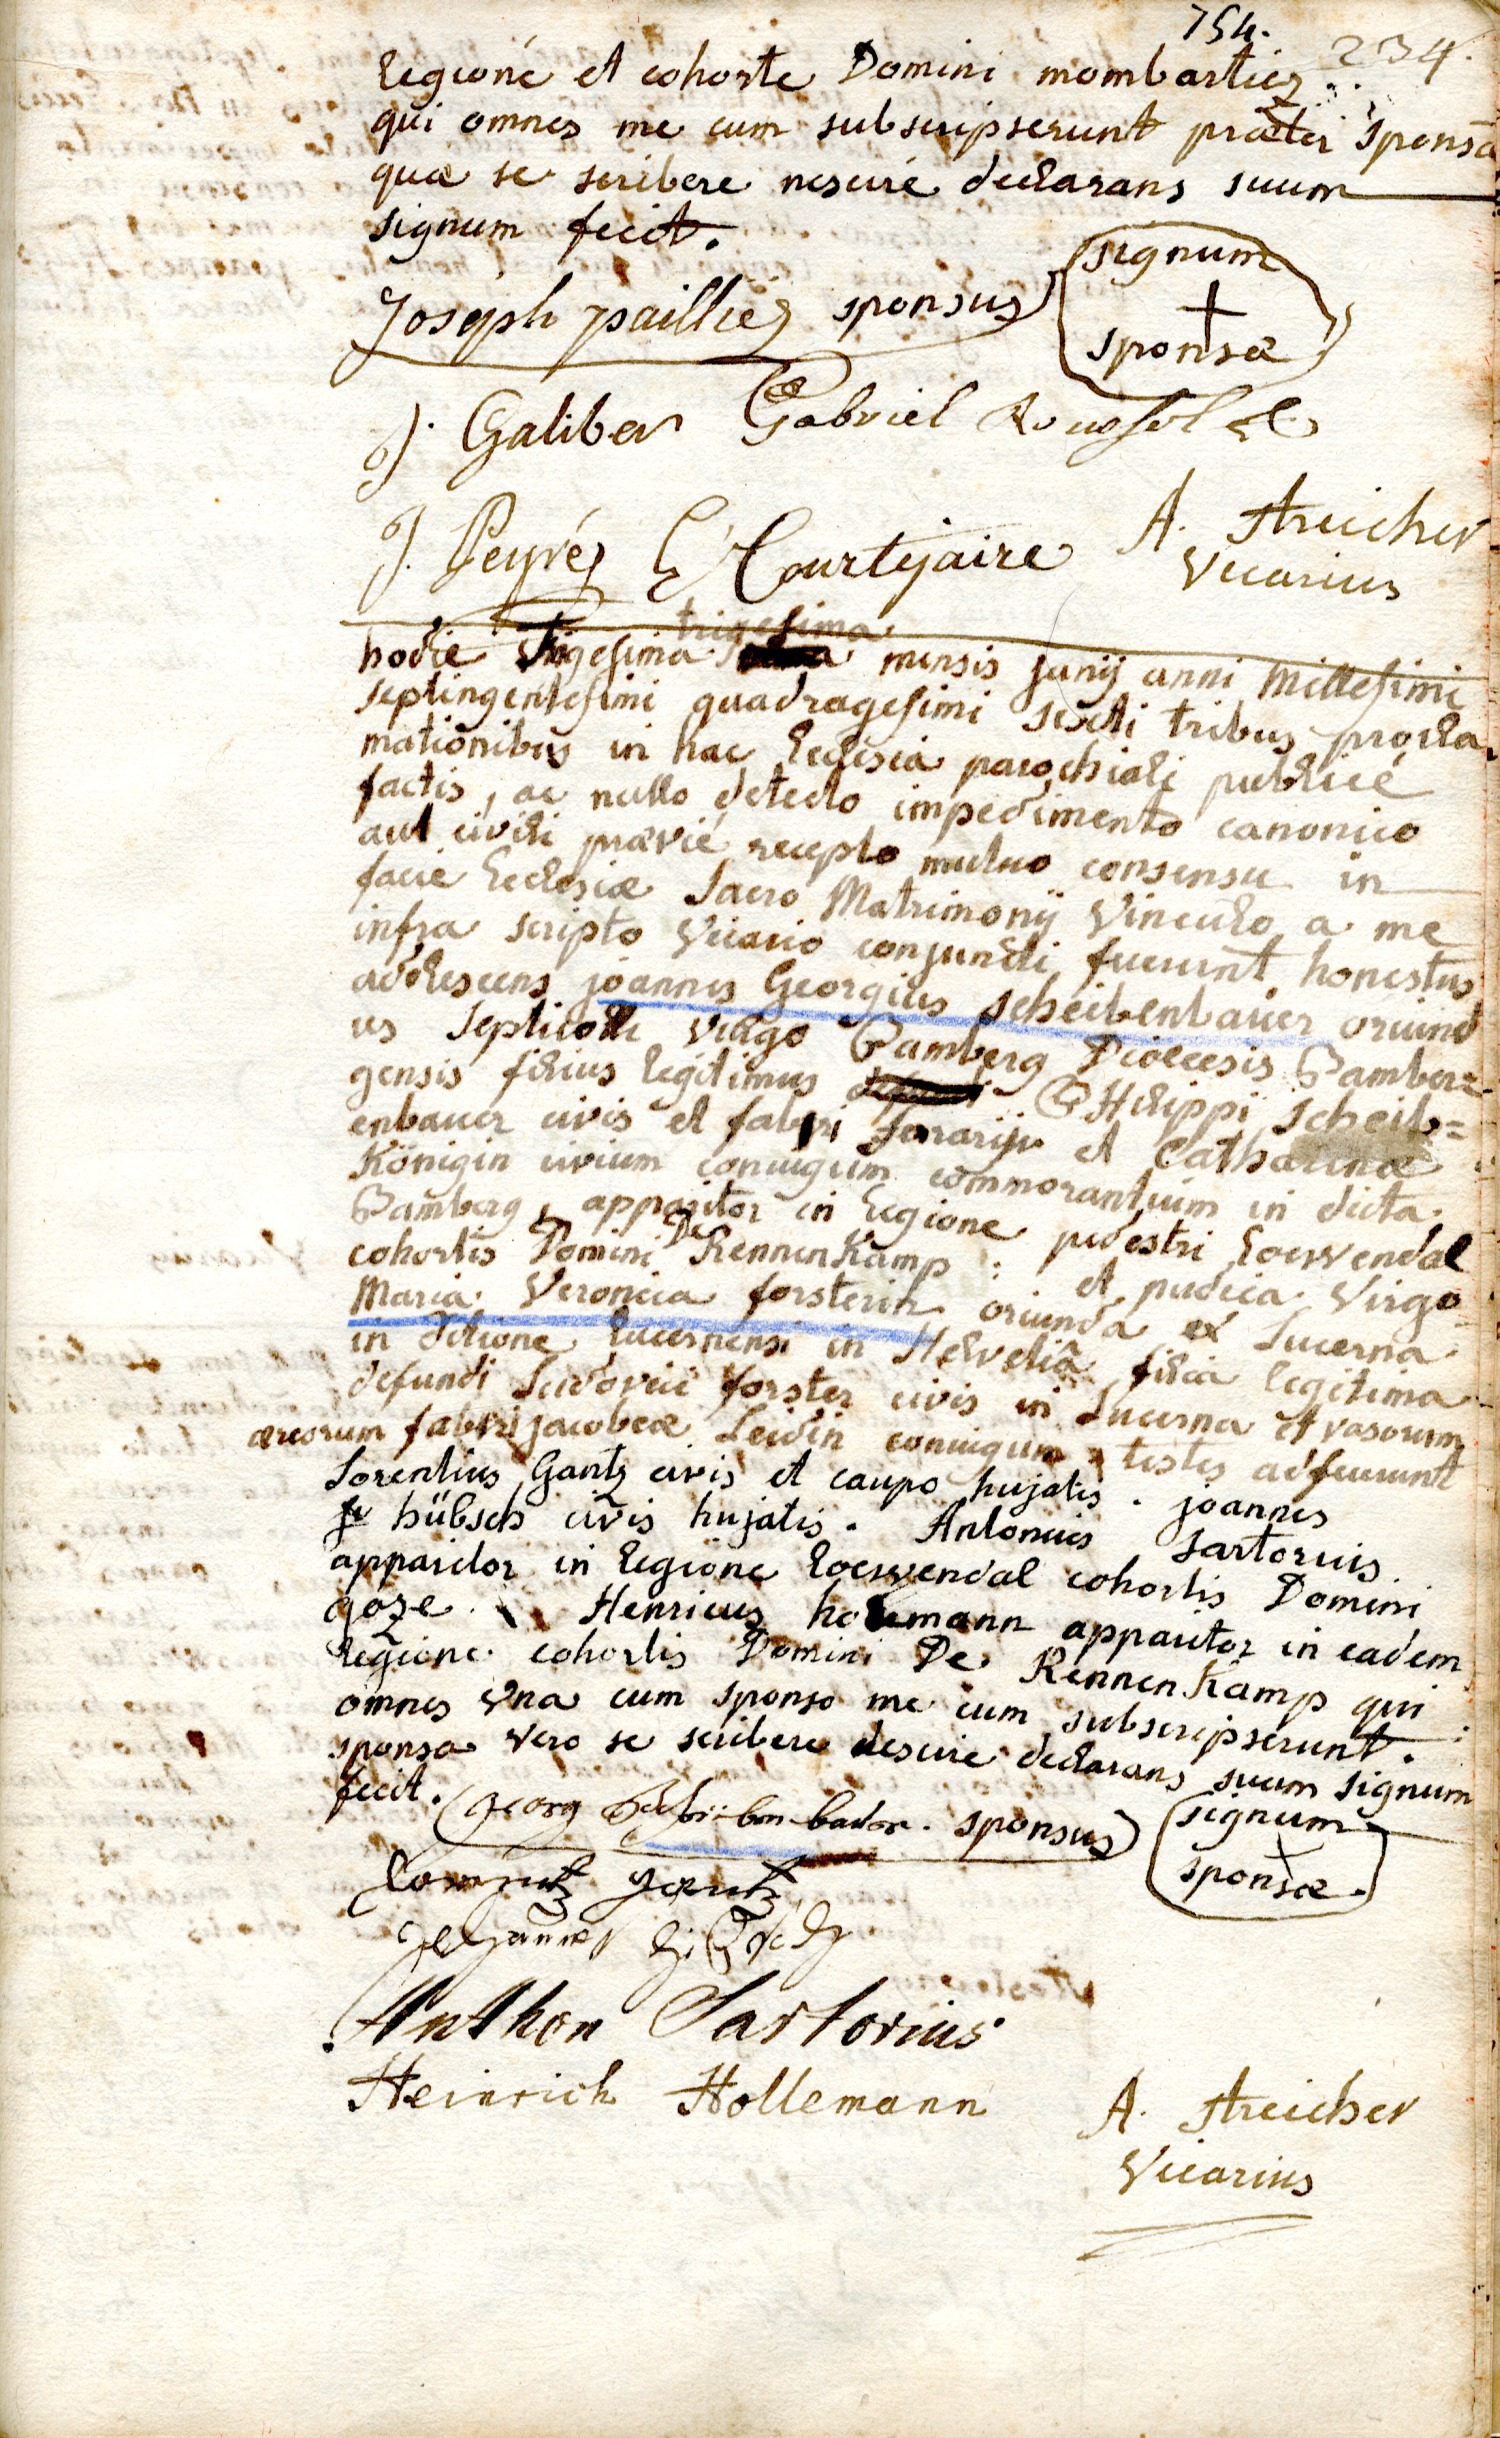 754. 234.
legioné et cohorte Domini mombartiez
qui omnes me cum subscripserunt præter sponsa
quæ se scribere nesciré declarans suum
signum fecit.
Joséph pailliez sponsus signum
+
sponsæ
J. Galiber Gabriel
J. Peyréz Courtejaire A. Streicher
Vicarius
trigesima
hodie mensis junij anni Millesimi
septingentesimi quadragesimi sexti tribus procla
mationibus in hac Ecclesia parochiali publicé
factis, ac nullo detecto impedimento canonico
aut civili prævié recepto mutuo consensu in
facie Ecclesiæ Sacro Matrimonij Vinculo a me
infra scripto Vicario conjuncti fuerunt honestus
adolescens joannes Georgius scheibenbauer oriund
us Septicolli vulgo Bamberg Dioecesis Bamber=
gensis filius legitimus Philippi scheib=
enbauer civis et fabri ferrarij et Catharinæ
Königin civium coniugum commorantium in dicta
Bamberg, apparitor in legione pedestri Loewendal
cohortis Domini De RennenKamp: et pudica Virgo
Maria Veronica forsterin oriunda ex Lucerna
in ditione lucernensi in Helvetiâ filia legitima
defuncti Ludovici forster civis in Lucerna et vasorum
æreorum fabri jacobeæ Leidin coniugum, testes adfuerunt
Lorentius Gantz civis et caupo hujatis. joannes
hübsch civis hujatis. Antonius Sartorius
apparitor in legione Loewendal cohortis Domini
goze. Henricus hollemann apparitor in eadem
legione cohortis Domini De RennenKamp qui
omnes Una cum sponso me cum subscripserunt.
sponsa vero se scribere nescire declarans suum signum
fecit. georg sponsus signum
sponsæ.
gantz
Anthon Sartorius
Heinrich Hollemann A. Streicher
Vicarius